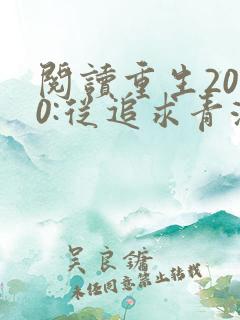 閱讀重生20
0:從追求青
吴良鏞
未经同意禁止转载